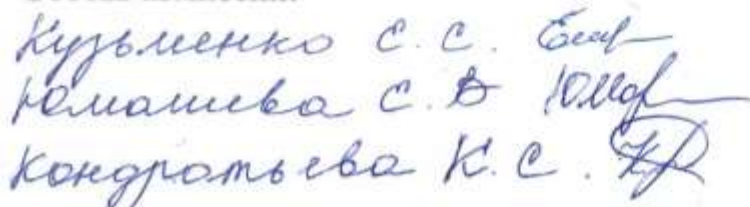 Кузьменко С. С.
Юмашева С. В
Кондратьева К. С.